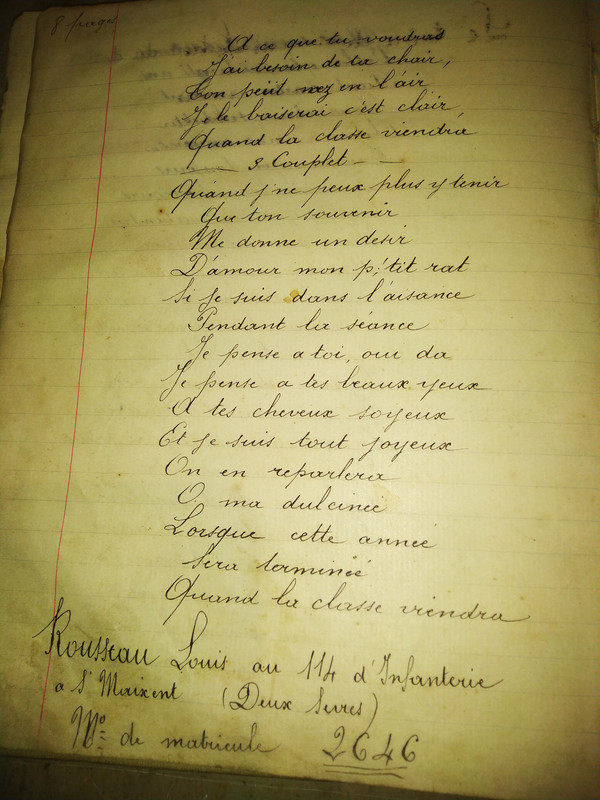 8 pages
A ce que tu voudras
J'ai besoin de ta chair,
Ton petit nez en l'air
Je le baiserai c'est clair
Quand la classe viendra
— 2 Couplet —
Quand j'ne peux plus y tenir
Que ton souvenir
Me donne un desir
D'amour mon p'tit rat
Si je suis dans l'aisance
Pendant la séance
Je pense a toi, oui da
Je pense a tes beaux yeux
A tes cheveux soyeux
Et je suis tout joyeux
On en reparlera
O ma dulcinée
Lorsque cette année
Sera terminée
Quand la classe viendra
Rousseau Louis au 114 d'Infanterie
a St Maixent (Deux Sevres)
No de matricule 2646